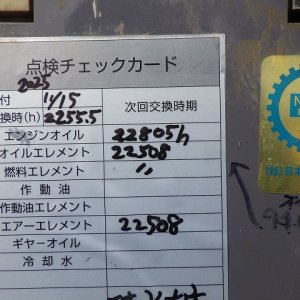 点検チェックカード
2025
付 11/15 次回交換時期
換時(h) 2255.5
エンジンオイル 22805h
オイルエレメント 22508
燃料エレメント 〃
作動油
作動油エレメント
エアーエレメント 22508
ギヤーオイル
冷却水
(社)日本